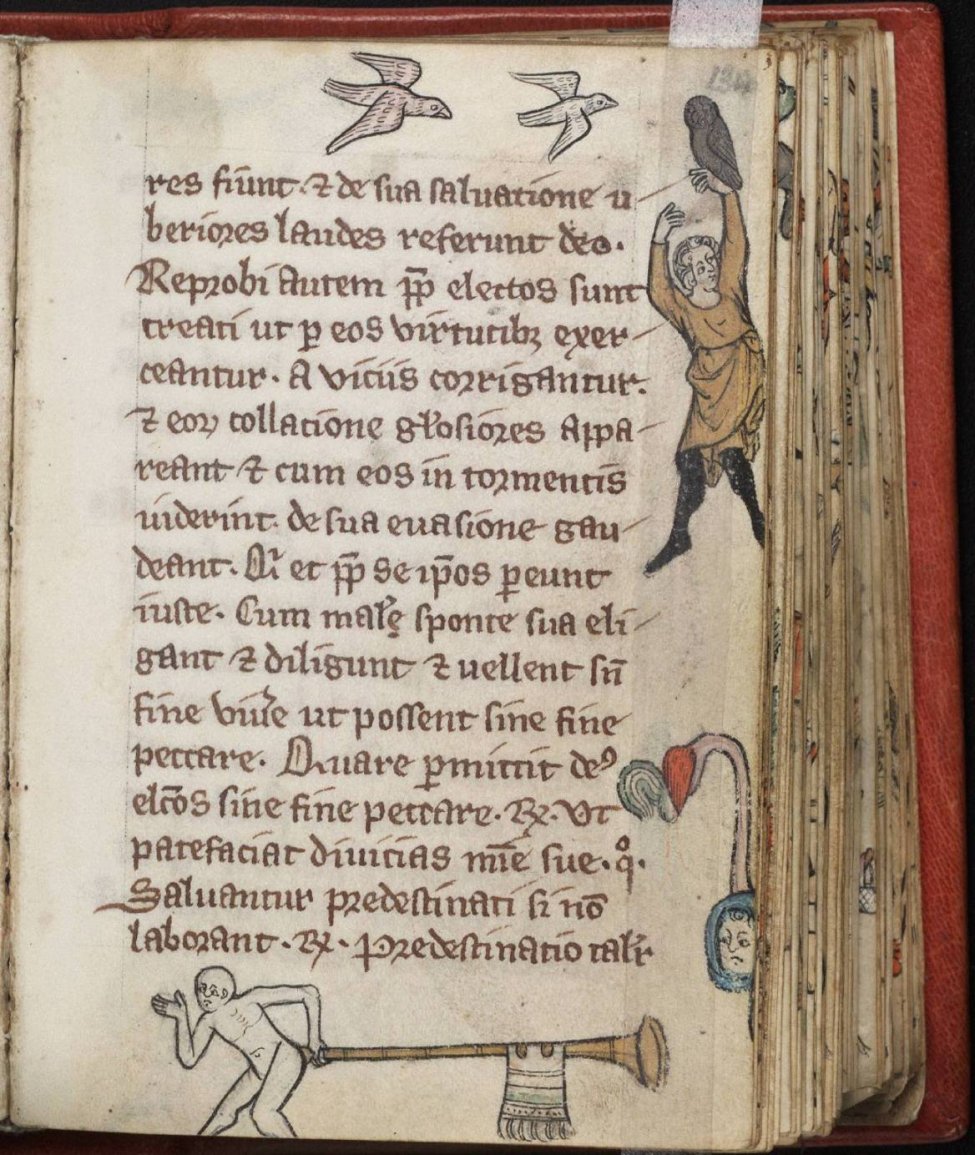 134
res fiūnt. ⁊ de sua saluatione u
beriores laudes referunt deo.
Reprobi autem pp̄ electos sunt
creati ut p eos virtutibꝫ exer
ceantur. A viciis corrigantur.
⁊ eoꝝ collatione gl'osiores appa
reant ⁊ cum eos in tormentis
uiderint. de sua euasione gau
deant. et pp̄ se ip̄os ꝑeunt
iuste. Cum mal' sponte sua eli
gant ⁊ diligunt ⁊ uellent sn̄
fine viu'e ut possent sine fine
peccare. Quare ꝑmittit deꝰ
elc̄os siue fine peccare. ℞. Vt
patefaciat diuicias mīe sue. qͦ.
Saluantur predestinati si nō
laborant. ℞. Predestinatio talr̄